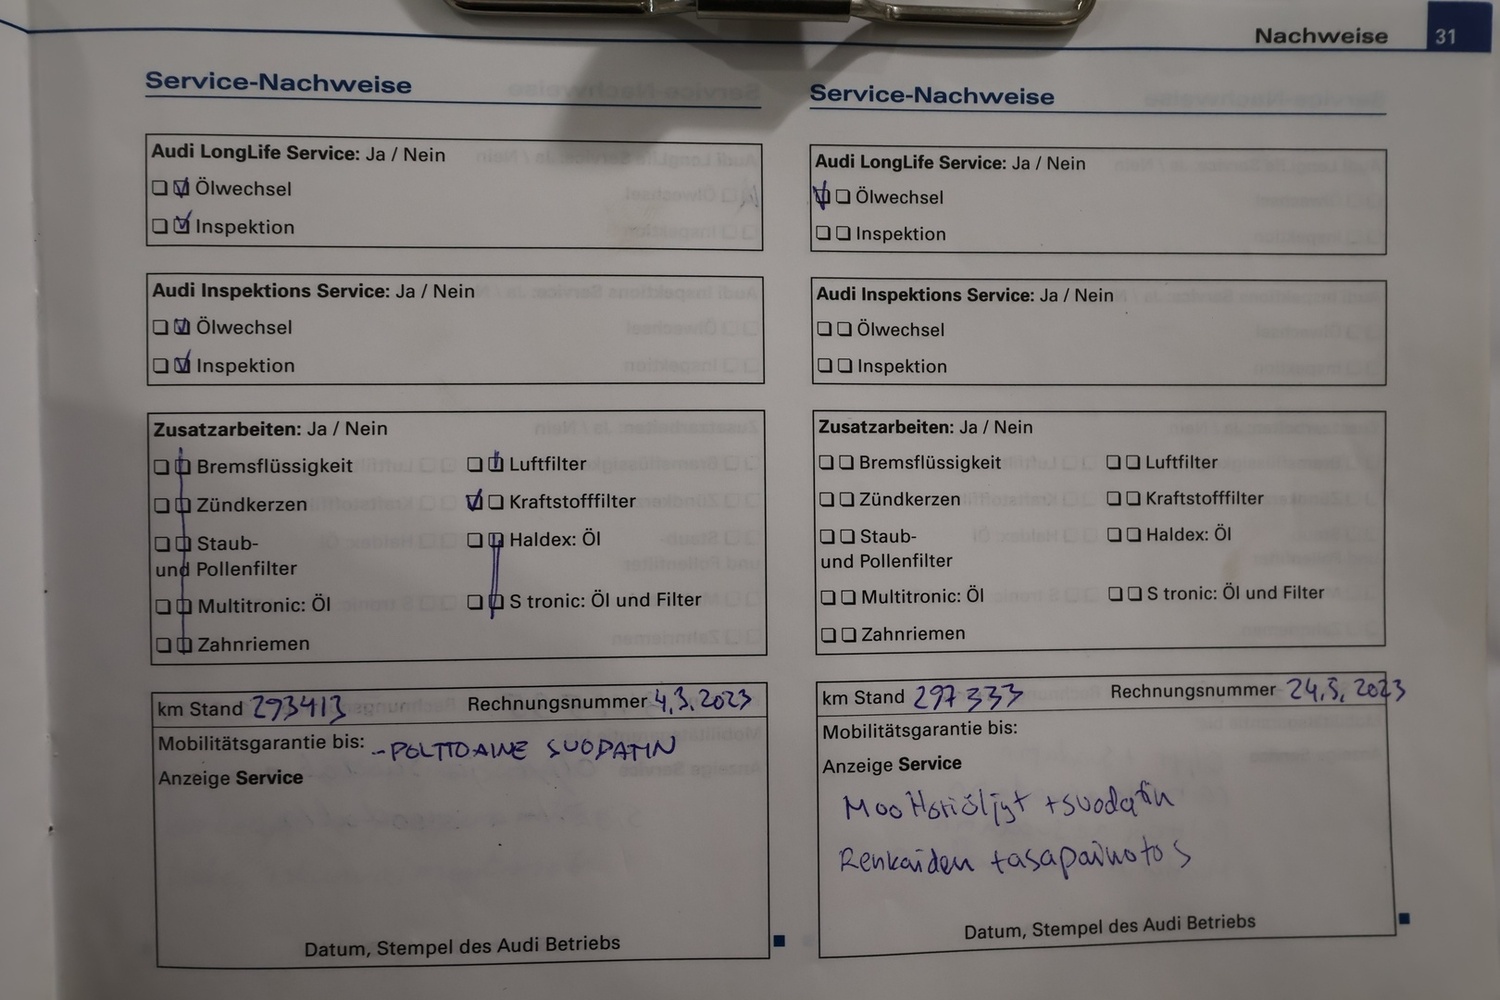 Nachweise 31
Service-Nachweise
Audi LongLife Service: Ja / Nein
Ölwechsel
Inspektion
Audi Inspektions Service: Ja / Nein
Ölwechsel
Inspektion
Zusatzarbeiten: Ja / Nein
Bremsflüssigkeit
Luftfilter
Zündkerzen
Kraftstofffilter
Staub-
und Pollenfilter
Haldex: Öl
Multitronic: Öl
S tronic: Öl und Filter
Zahnriemen
km Stand 293413 Rechnungsnummer 4,3.2023
Mobilitätsgarantie bis: -POLTTOAINE SUODATIN
Anzeige Service
Datum, Stempel des Audi Betriebs
Service-Nachweise
Audi LongLife Service: Ja / Nein
Ölwechsel
Inspektion
Audi Inspektions Service: Ja / Nein
Ölwechsel
Inspektion
Zusatzarbeiten: Ja / Nein
Bremsflüssigkeit
Luftfilter
Zündkerzen
Kraftstofffilter
Staub-
und Pollenfilter
Haldex: Öl
Multitronic: Öl
S tronic: Öl und Filter
Zahnriemen
km Stand 297333 Rechnungsnummer 24,5, 2023
Mobilitätsgarantie bis:
Anzeige Service
Moottoriöljyt +suodatin
Renkaiden tasapainotos
Datum, Stempel des Audi Betriebs